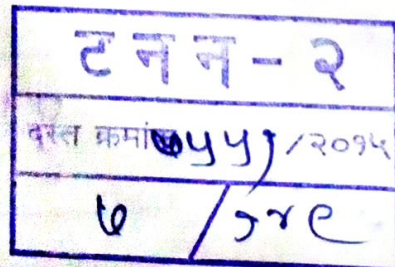 टनन - २
दस्त क्रमांक ७५५१/२०१५
७ / १४९